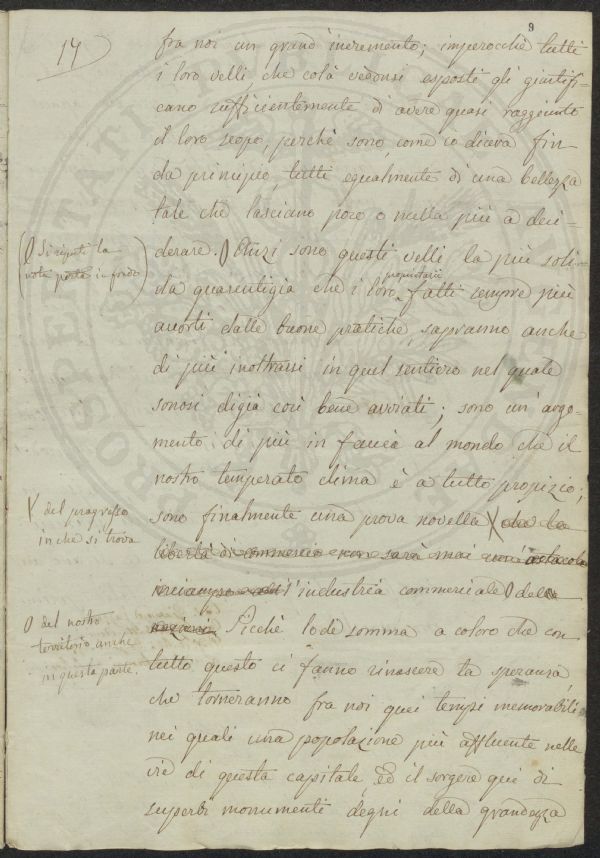 9
14
fra noi un grand'incremento; imperocchè tutti
i loro velli che colà vedonsi esposti gli giustifi-
cano sufficientemente di avere quasi raggiunto
il loro scopo, perchè sono, come io diceva fin
da principio, tutti egualmente di una bellezza
tale che lasciano poco o nulla più a desi-
derare. O Anzi sono questi velli la più soli-
da guarentigia che i loro proprietarii fatti sempre più
accorti dalle buone pratiche, sapranno anche
di più inoltrarsi in quel sentiero nel quale
sonosi digià così bene avviati; sono un argo-
mento di più in faccia al mondo che il
nostro temperato clima è a tutto propizio;
sono finalmente una prova novella X che la
libertà di commercio non sarà mai
l'industria commerciale O della
nazioni. Sicchè lode somma a coloro che con
tutto questo ci fanno rinascere la speranza,
che torneranno fra noi quei tempi memorabili
nei quali una popolazione più affluente nelle
vie di questa capitale, ed il sorgere qui di
superbi monumenti degni della grandezza
O Si riporti la
nota posta in fondo
X del progresso
in chè si trova
O del nostro
territorio anche
in questa parte.
PROSPERITATI PUBLICAE